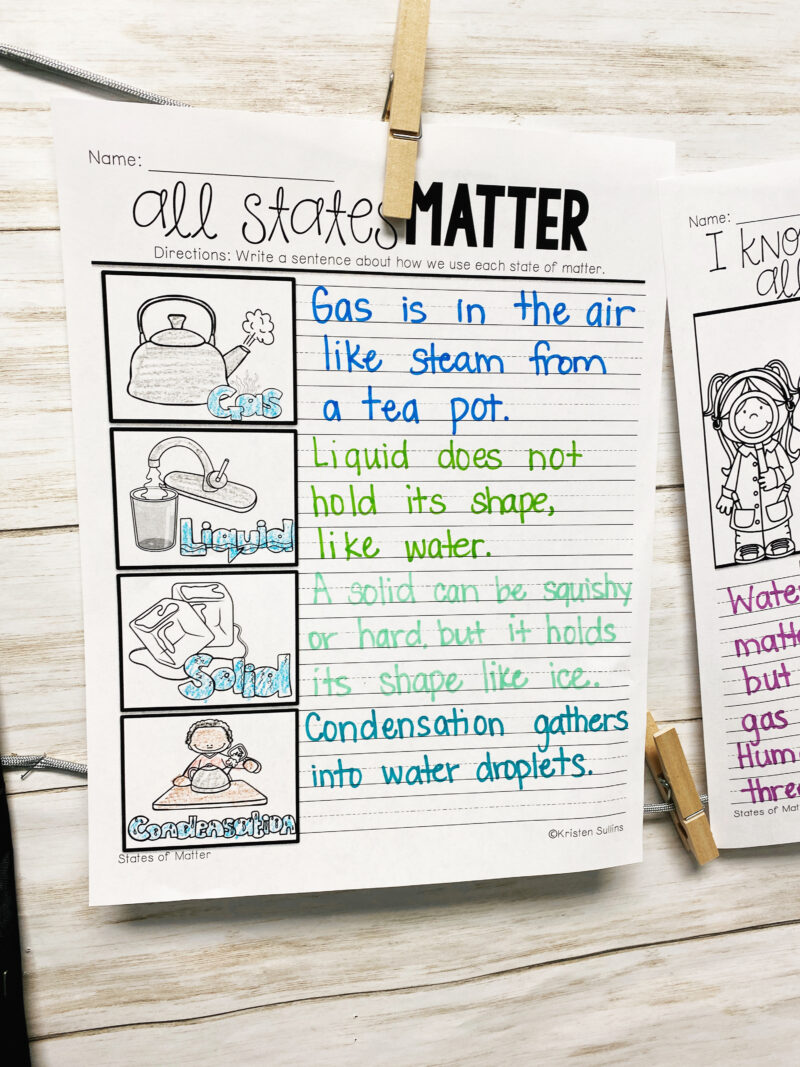 Name:
all states MATTER
Directions: Write a sentence about how we use each state of matter.
Gas
Gas is in the air
like steam from
a tea pot.
Liquid
Liquid does not
hold its shape,
like water.
Solid
A solid can be squishy
or hard, but it holds
its shape like ice.
Condensation
Condensation gathers
into water droplets.
©Kristen Sullins
States of Matter
Name:
I
all
matt
but
gas
three
States of